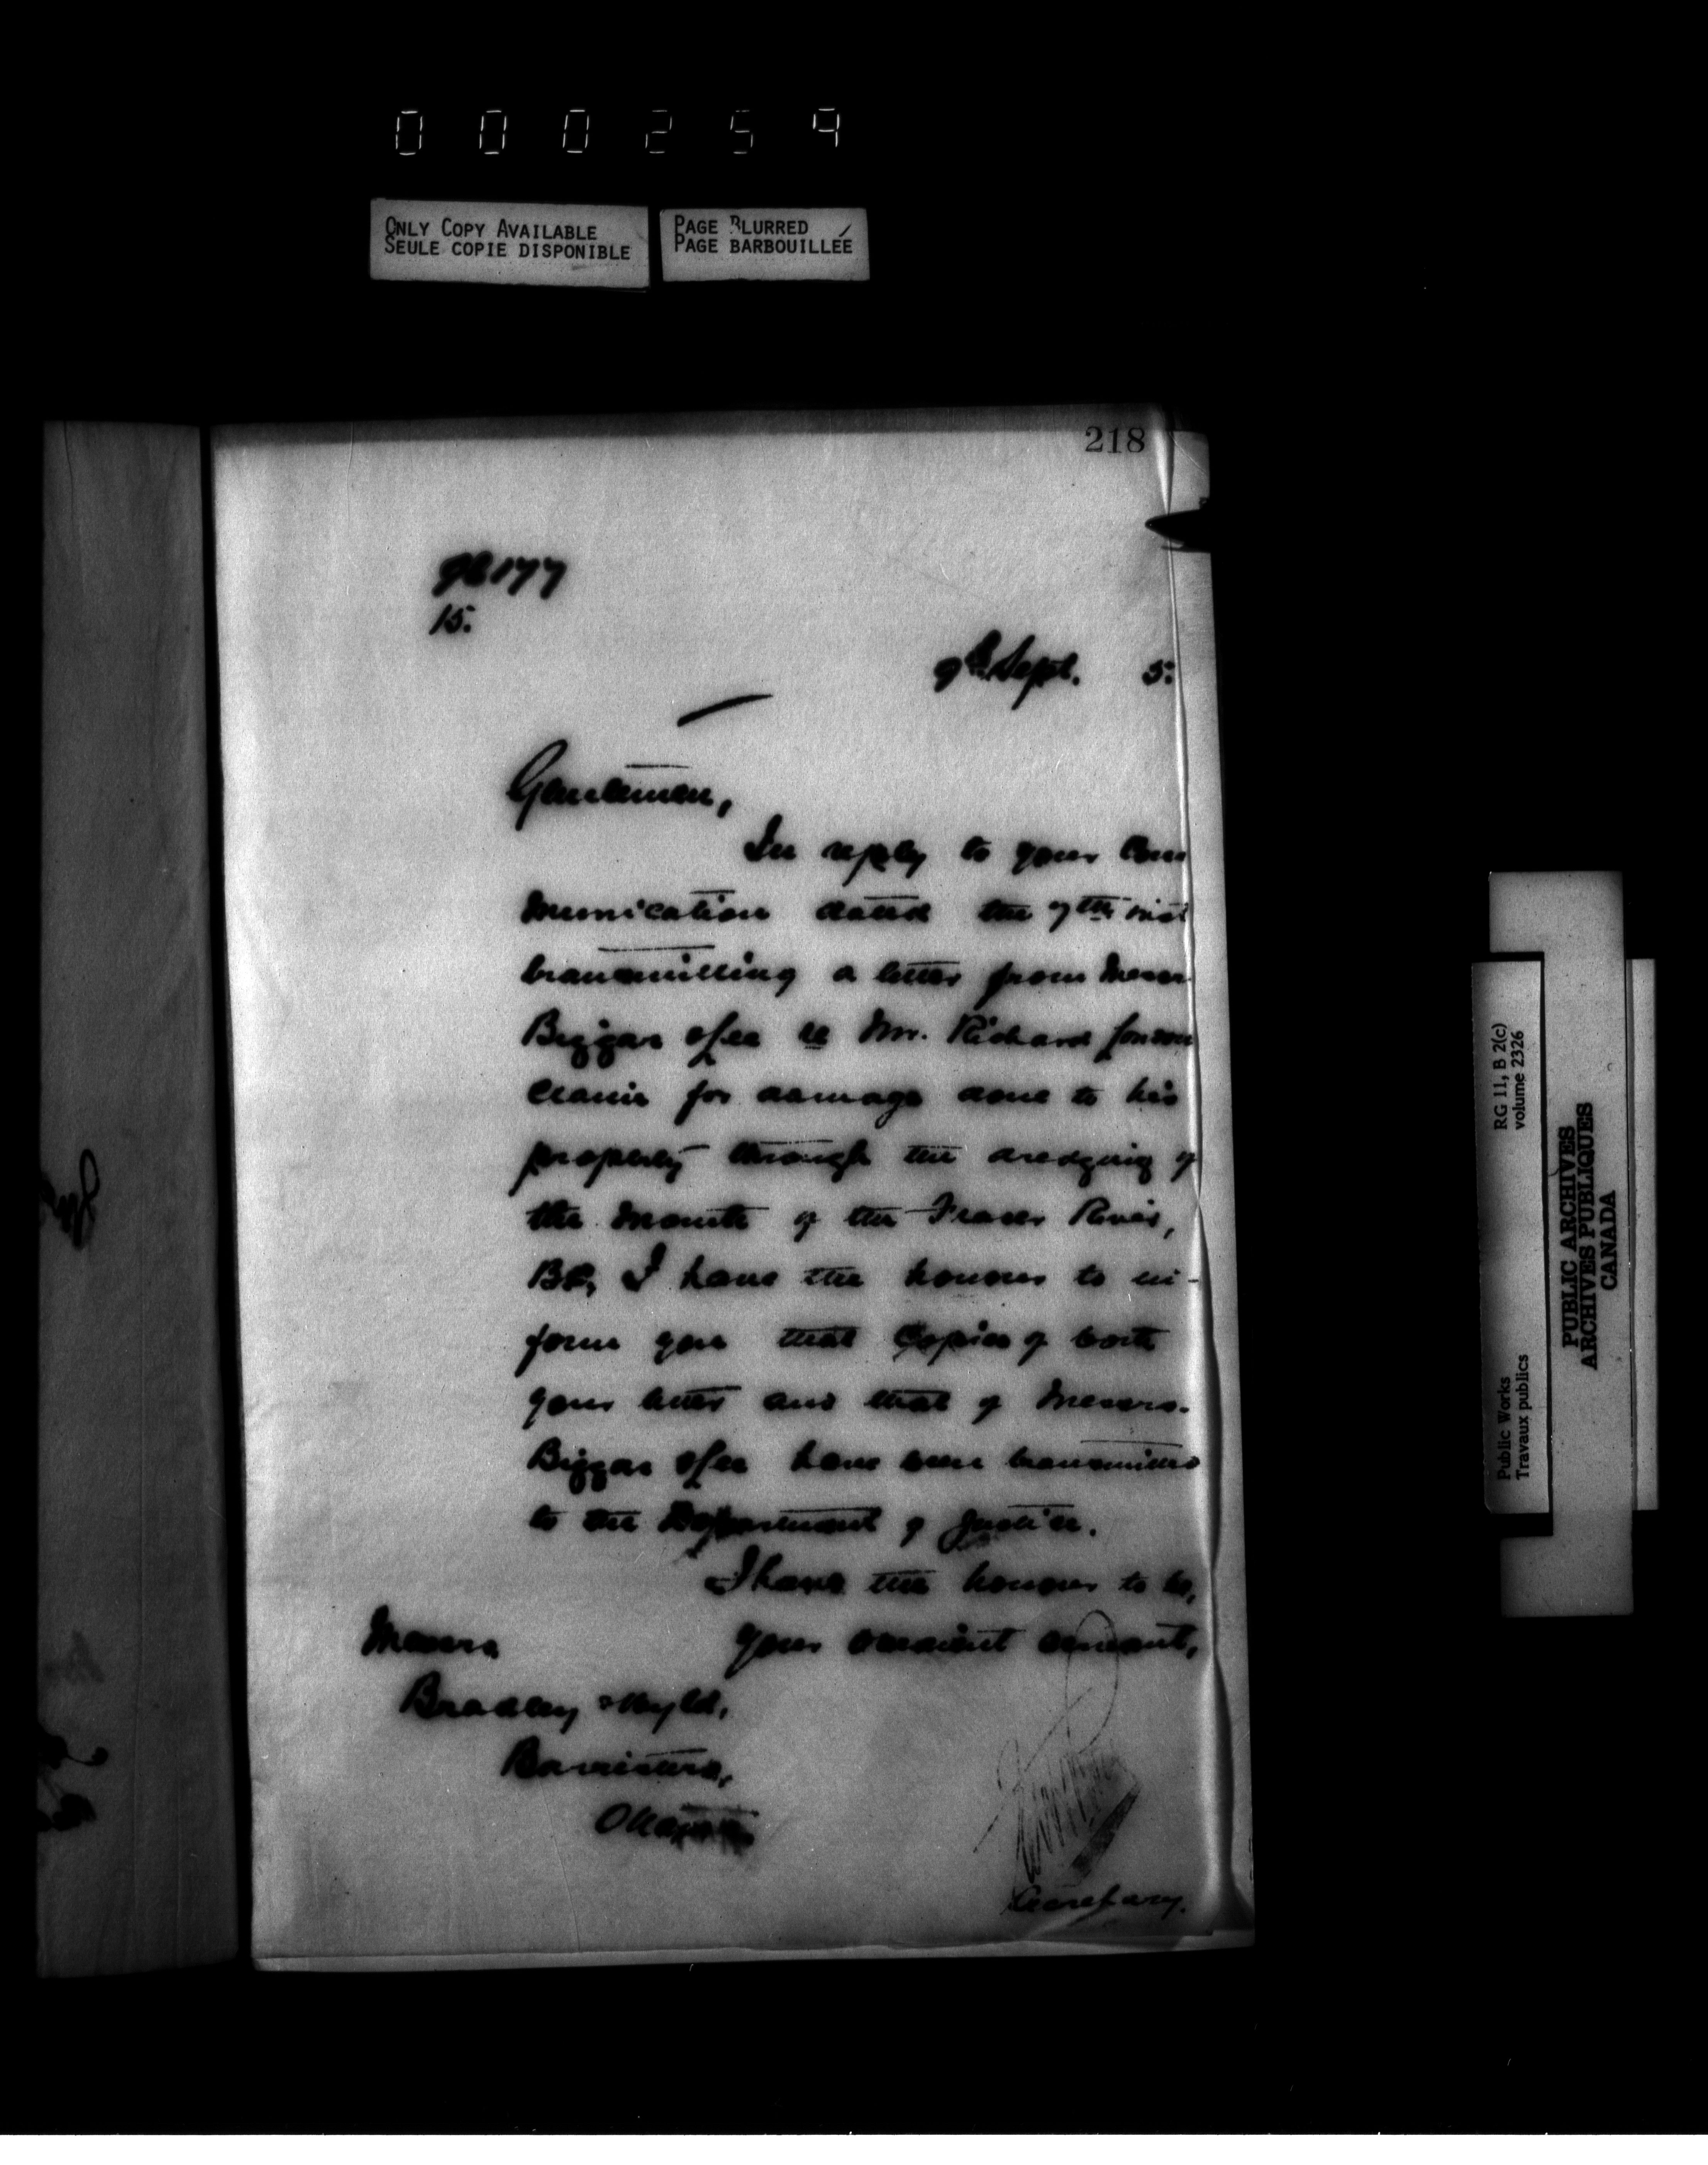 000259
ONLY COPY AVAILABLE
SEULE COPIE DISPONIBLE
PAGE BLURRED
PAGE BARBOUILLÉE
218
177
15.
9th Sept. 5.
Gentlemen,
In reply to your Com
munication dated the 7th inst
transmitting a letter from Messrs
Biggar & Lee re Mr. Richard
claim for damage done to his
property through the dredging of
the Mouth of the Fraser River,
BC, I have the honour to in-
form you that Copies of both
your letter and that of Messrs.
Biggar & Lee have been transmitted
to the Department of Justice.
I have the honour to be,
your obedient servant,
Messrs
Bradley & Wyld,
Barristers,
Ottawa
Secretary.
RG 11, B 2(c)
volume 2326
Public Works
Travaux publics
PUBLIC ARCHIVES
ARCHIVES PUBLIQUES
CANADA